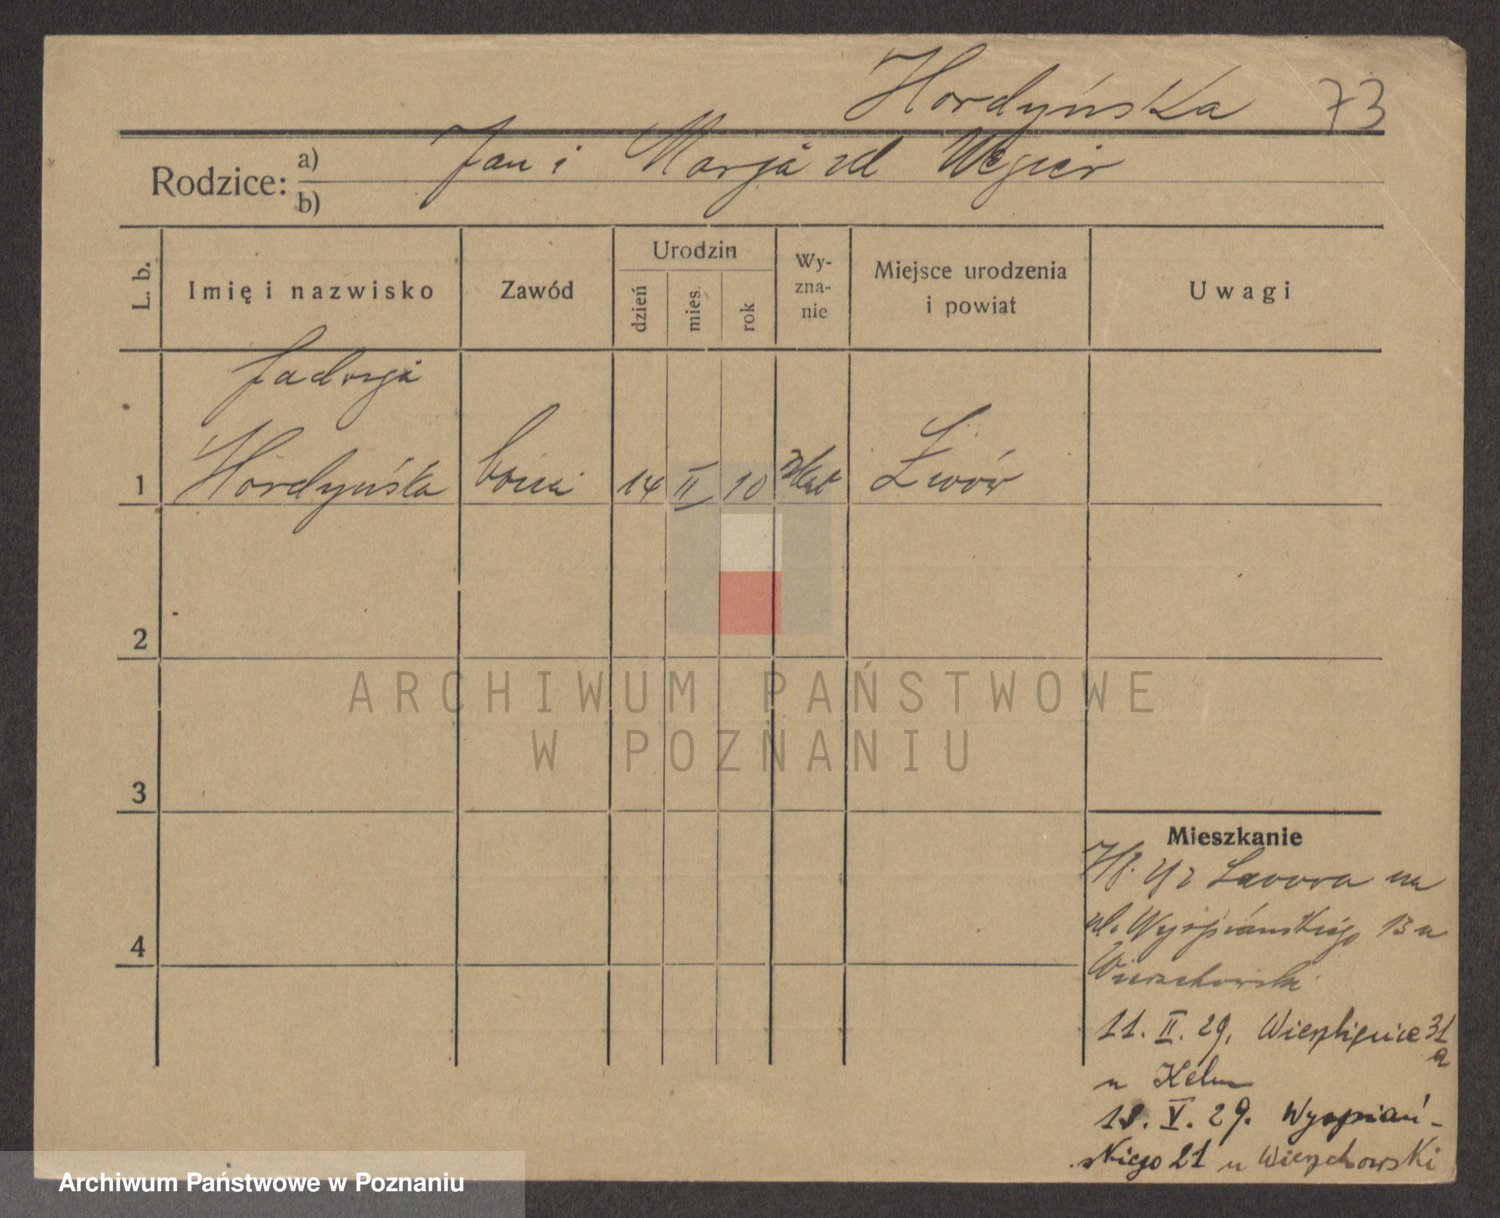 Hordyńska 73
Rodzice: a) Jan i Marja zd Węgier
b)
L. b. Imię i nazwisko Zawód Urodzin dzień mies. rok Wy-zna-nie Miejsce urodzenia i powiat Uwagi
Jadwiga
1 Hordyńska bona 14 II 10 rzkat Lwów
2
3
4
Mieszkanie
Lwowa na
ul. Wyspiańskiego 13 u
Wierzchowski
11. II. 29. Wierzbięcice 31
a
u Kelm
18. V. 29. Wyspiań-
skiego 21 u Wierzchowski
ARCHIWUM PAŃSTWOWE
W POZNANIU
Archiwum Państwowe w Poznaniu